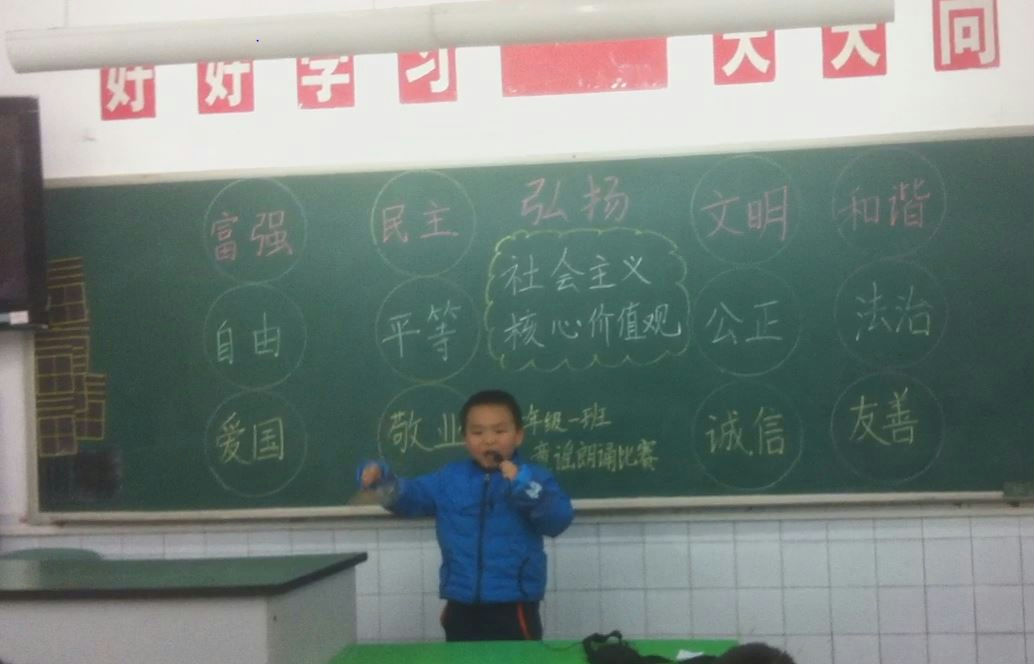 好好学习 天天向
富强 民主 弘扬 文明 和谐
社会主义
自由 平等 核心价值观 公正 法治
爱国 敬业 年级一班 诚信 友善
童谣朗诵比赛